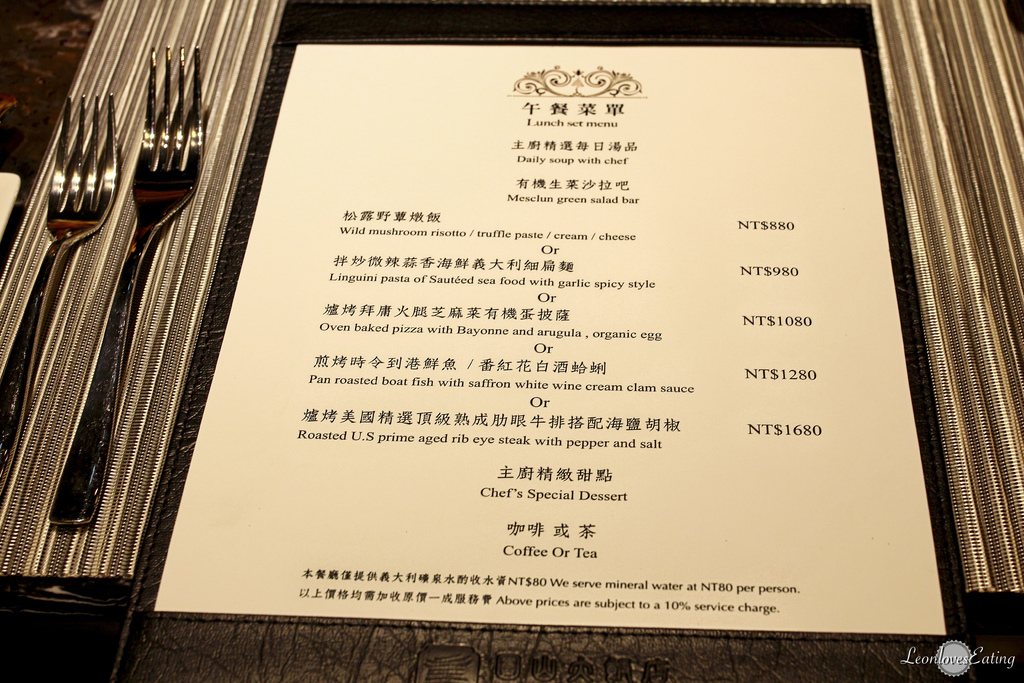 午餐菜單
Lunch set menu
主廚精選每日湯品
Daily soup with chef
有機生菜沙拉吧
Mesclun green salad bar
松露野蕈燉飯
Wild mushroom risotto / truffle paste / cream / cheese NT$880
Or
拌炒微辣蒜香海鮮義大利細扁麵
Linguini pasta of Sautéed sea food with garlic spicy style NT$980
Or
爐烤拜庸火腿芝麻菜有機蛋披薩
Oven baked pizza with Bayonne and arugula , organic egg NT$1080
Or
煎烤時令到港鮮魚 / 番紅花白酒蛤蜊
Pan roasted boat fish with saffron white wine cream clam sauce NT$1280
Or
爐烤美國精選頂級熟成肋眼牛排搭配海鹽胡椒
Roasted U.S prime aged rib eye steak with pepper and salt NT$1680
主廚精緻甜點
Chef's Special Dessert
咖啡 或 茶
Coffee Or Tea
本餐廳僅提供義大利礦泉水酌收水資NT$80 We serve mineral water at NT80 per person.
以上價格均需加收原價一成服務費 Above prices are subject to a 10% service charge.
LeonlovesEating